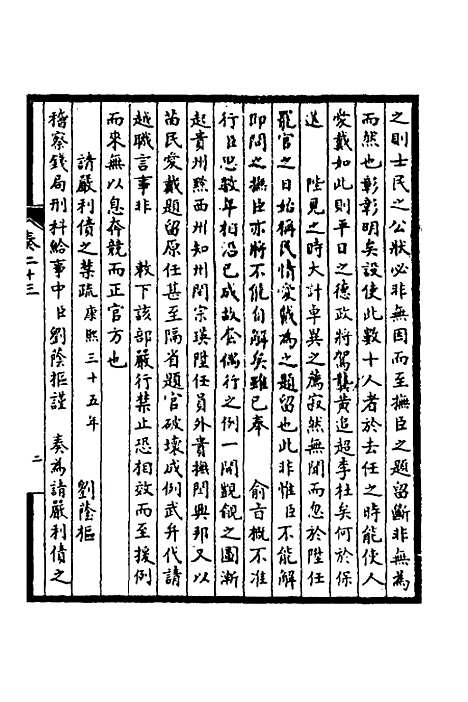 之則士民之公狀必非無因而至撫臣之題留斷非無為
而然也彰彰明矣設使此數十人者於去任之時能使人
愛戴如此則平日之德政將駕龔黃追超李杜矣何於保
送　陛見之時大計卓異之薦寂然無聞而忽於陛任
罷官之日始稱民情愛戴為之題留也此非惟臣不能解
即問之撫臣亦將不能自解矣雖已奉　俞旨概不准
行臣思數年相沿已成故套偶行之例一開覬覦之圖漸
起貴州黔西州知州閆宗瑛陞任員外貴撫閆興邦又以
苗民愛戴題留原任甚至隔省題官破壞成例武弁代請
越職言事非　敕下該部嚴行禁止恐相效而至援例
而來無以息奔競而正官方也
請嚴利債之禁疏康熙三十五年　劉蔭樞
稽察錢局刑科給事中臣劉蔭樞謹　奏為請嚴利債之
奏二十三
二